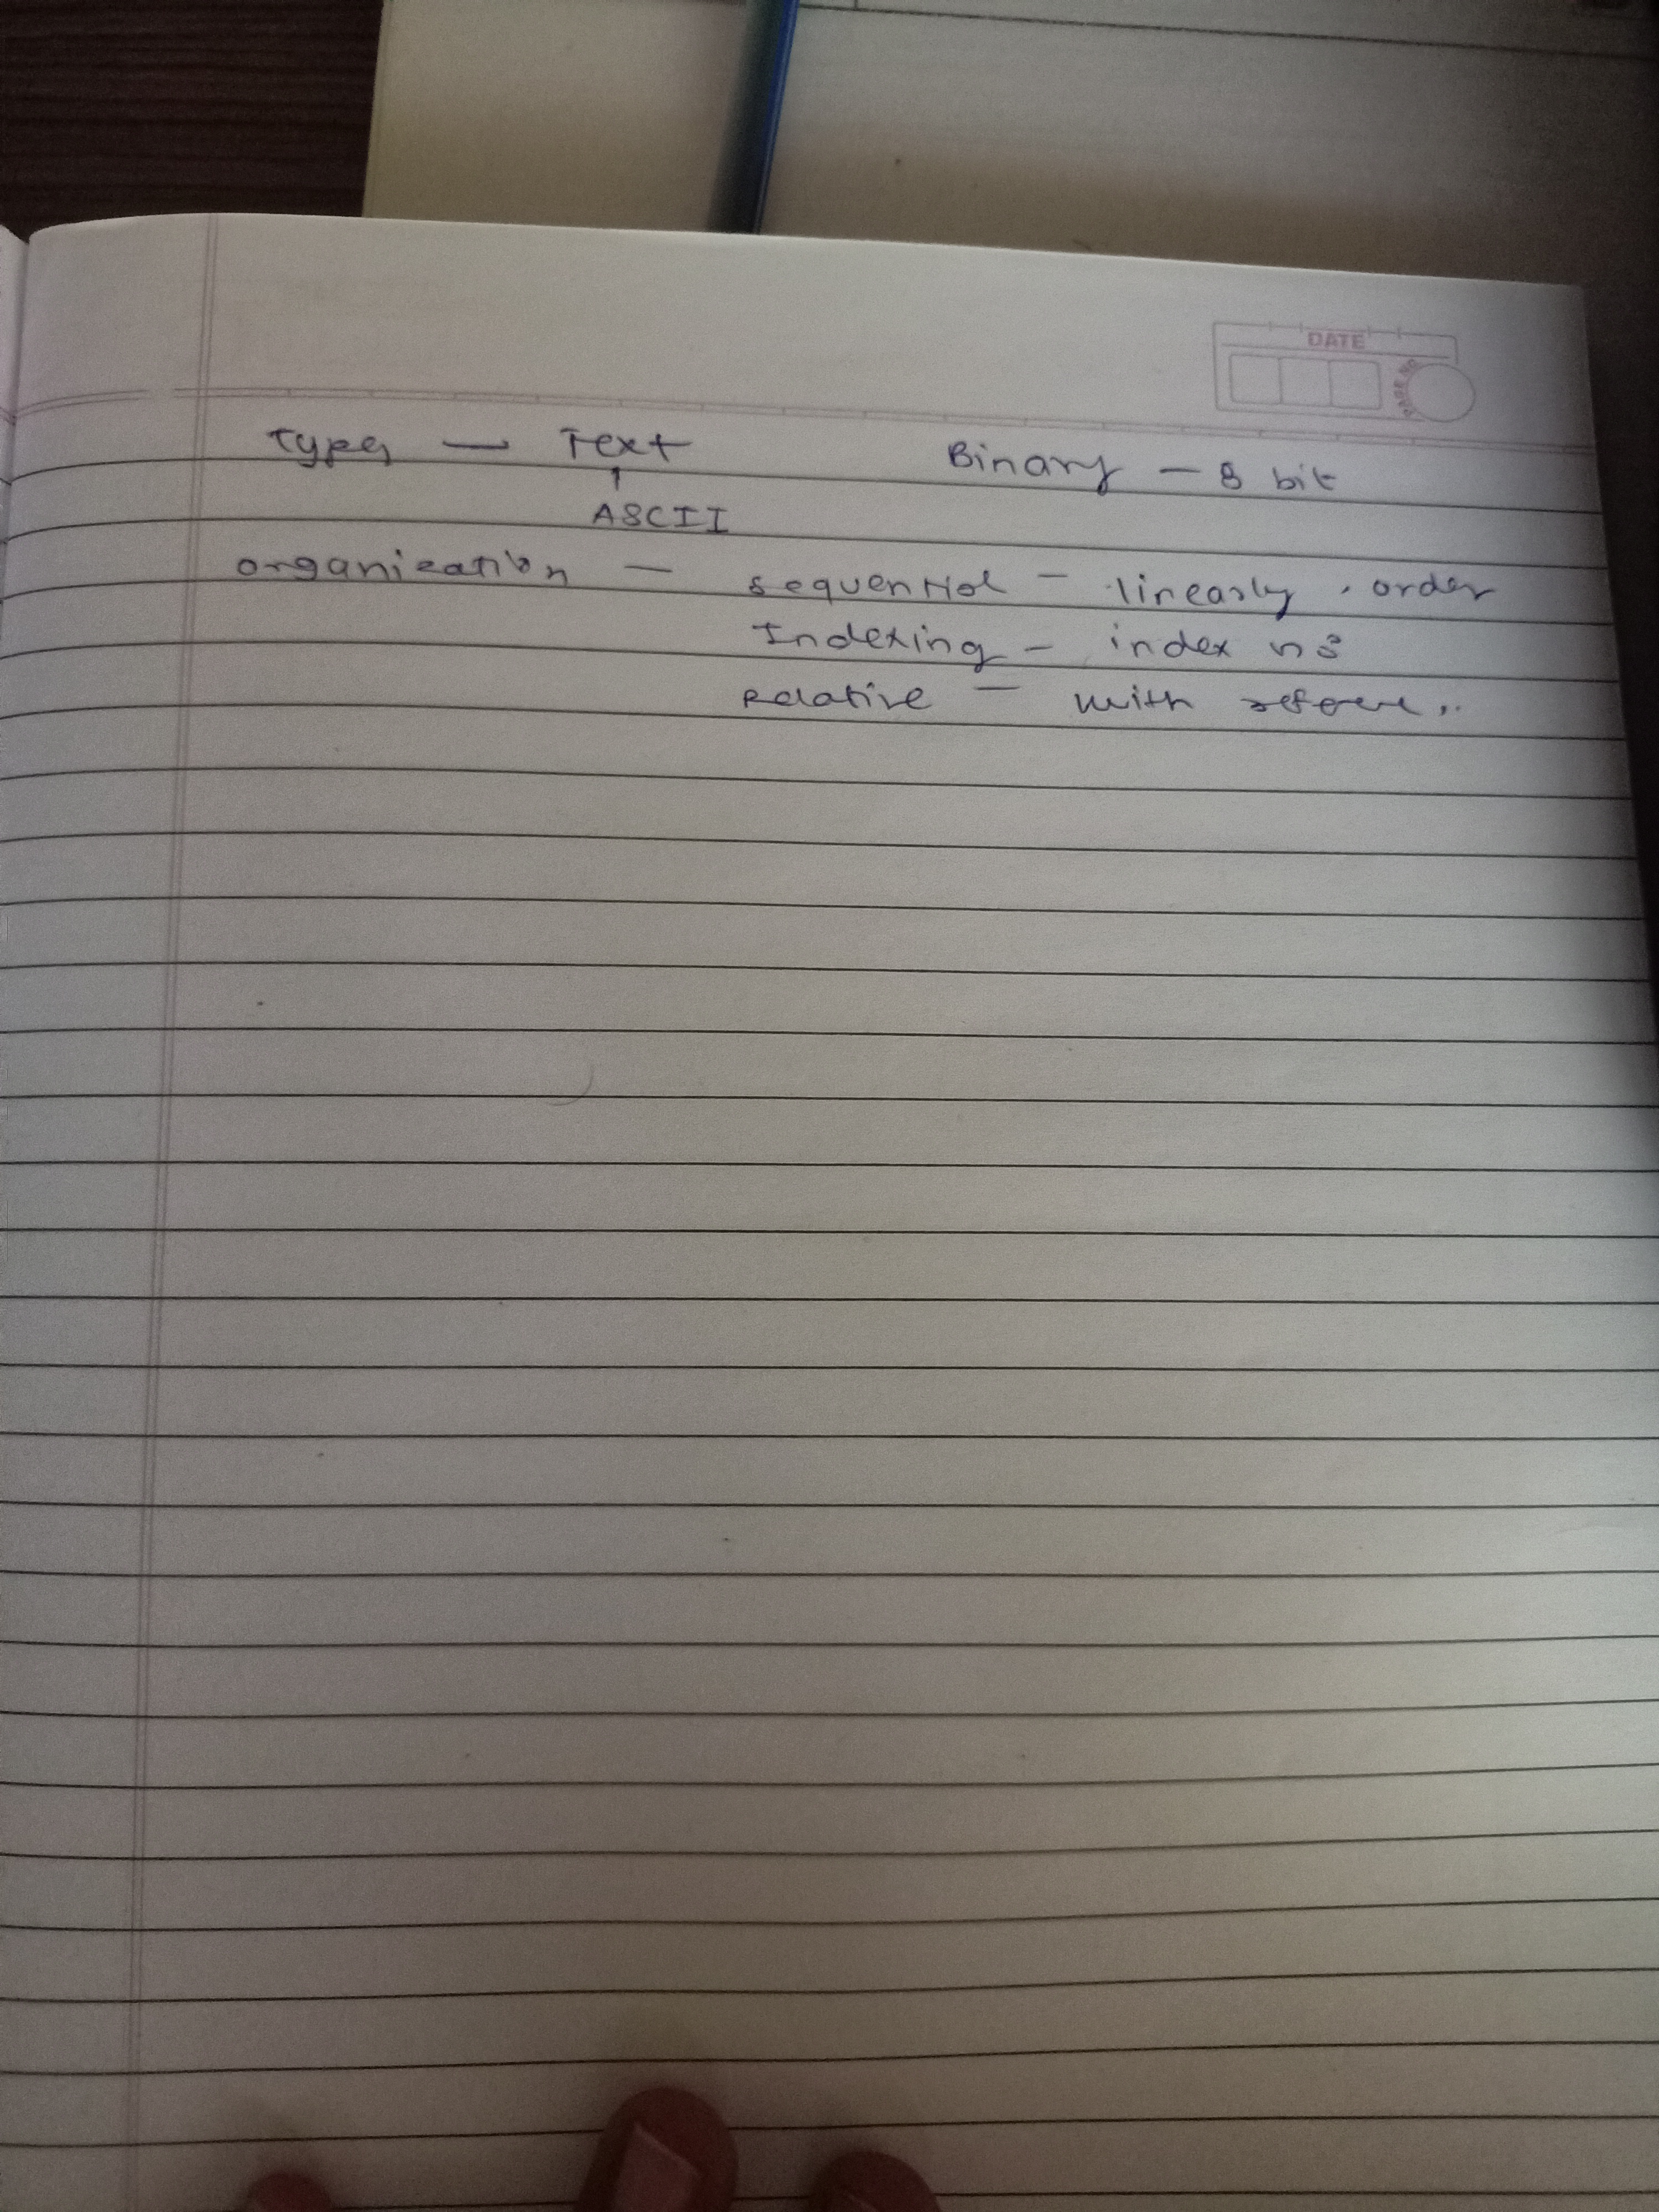 DATE
PAGE NO.
Types — Text Binary — 8 bit
ASCII
organization — sequential — linearly, order
Indexing — index
Relative — with